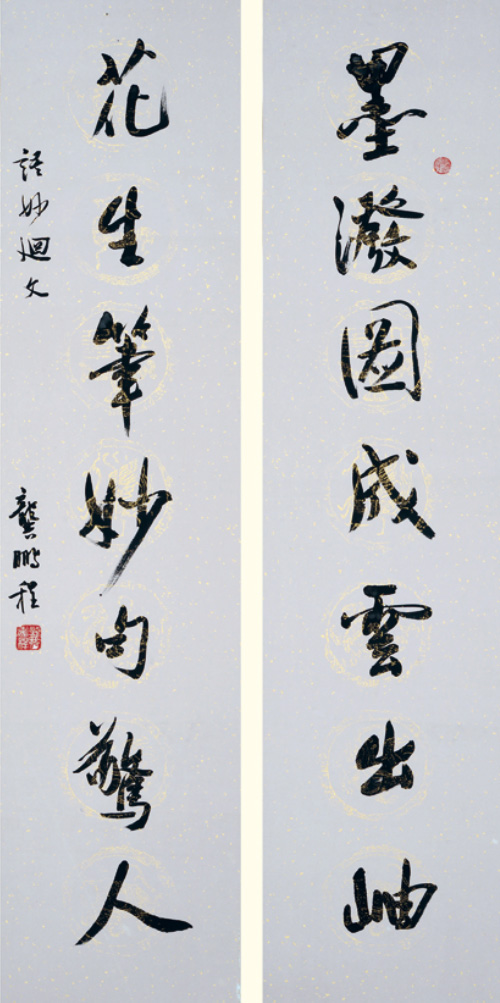 墨潑圖成雲出岫
花生筆妙句驚人
語妙迴文
龔鵬程